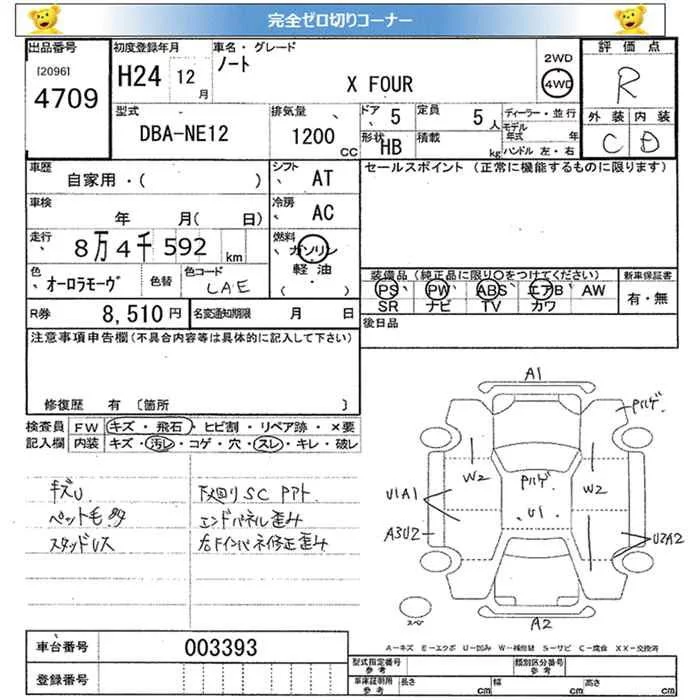 完全ゼロ切りコーナー
出品番号
[2096]
4709
初度登録年月
H24 12 月
車名・グレード
ノート
X FOUR
2WD
4WD
評価点
R
外装 内装
C D
型式
DBA-NE12
排気量
1200 CC
ドア 5
形状 HB
定員 5 人
積載 kg
ディーラー・並行
モデル年式 年
ハンドル 左・右
車歴
自家用・( )
シフト AT
セールスポイント (正常に機能するものに限ります)
車検
年 月( 日)
冷房 AC
走行
8万4千592 km
燃料
ガソリン
軽油
( )
色
オーロラモーヴ
色替
色コード
LAE
装備品 (純正品に限り○をつけてください)
PS PW ABS エアB AW
SR ナビ TV カワ
新車保証書
有・無
R券 8,510 円
名変通知期限 月 日
後日品
注意事項申告欄 (不具合内容等は具体的に記入して下さい)
修復歴 有 〔箇所 〕
検査員記入欄
FW キズ・飛石・ヒビ割・リペア跡・×要
内装 キズ・汚レ・コゲ・穴・スレ・キレ・破レ
キズU
下廻りSC
エンドパネル歪み
スタッドレス
A1
W2
W2
U1A1
U1
A3U2
U2A2
スペ
A2
A-キズ E-エクボ U-凹み W-補修跡 S-サビ C-腐食 XX-交換済
車台番号 003393
登録番号
型式指定番号 参考
類別区分番号 参考
車庫証明用 参考
長さ cm
幅 cm
高さ cm